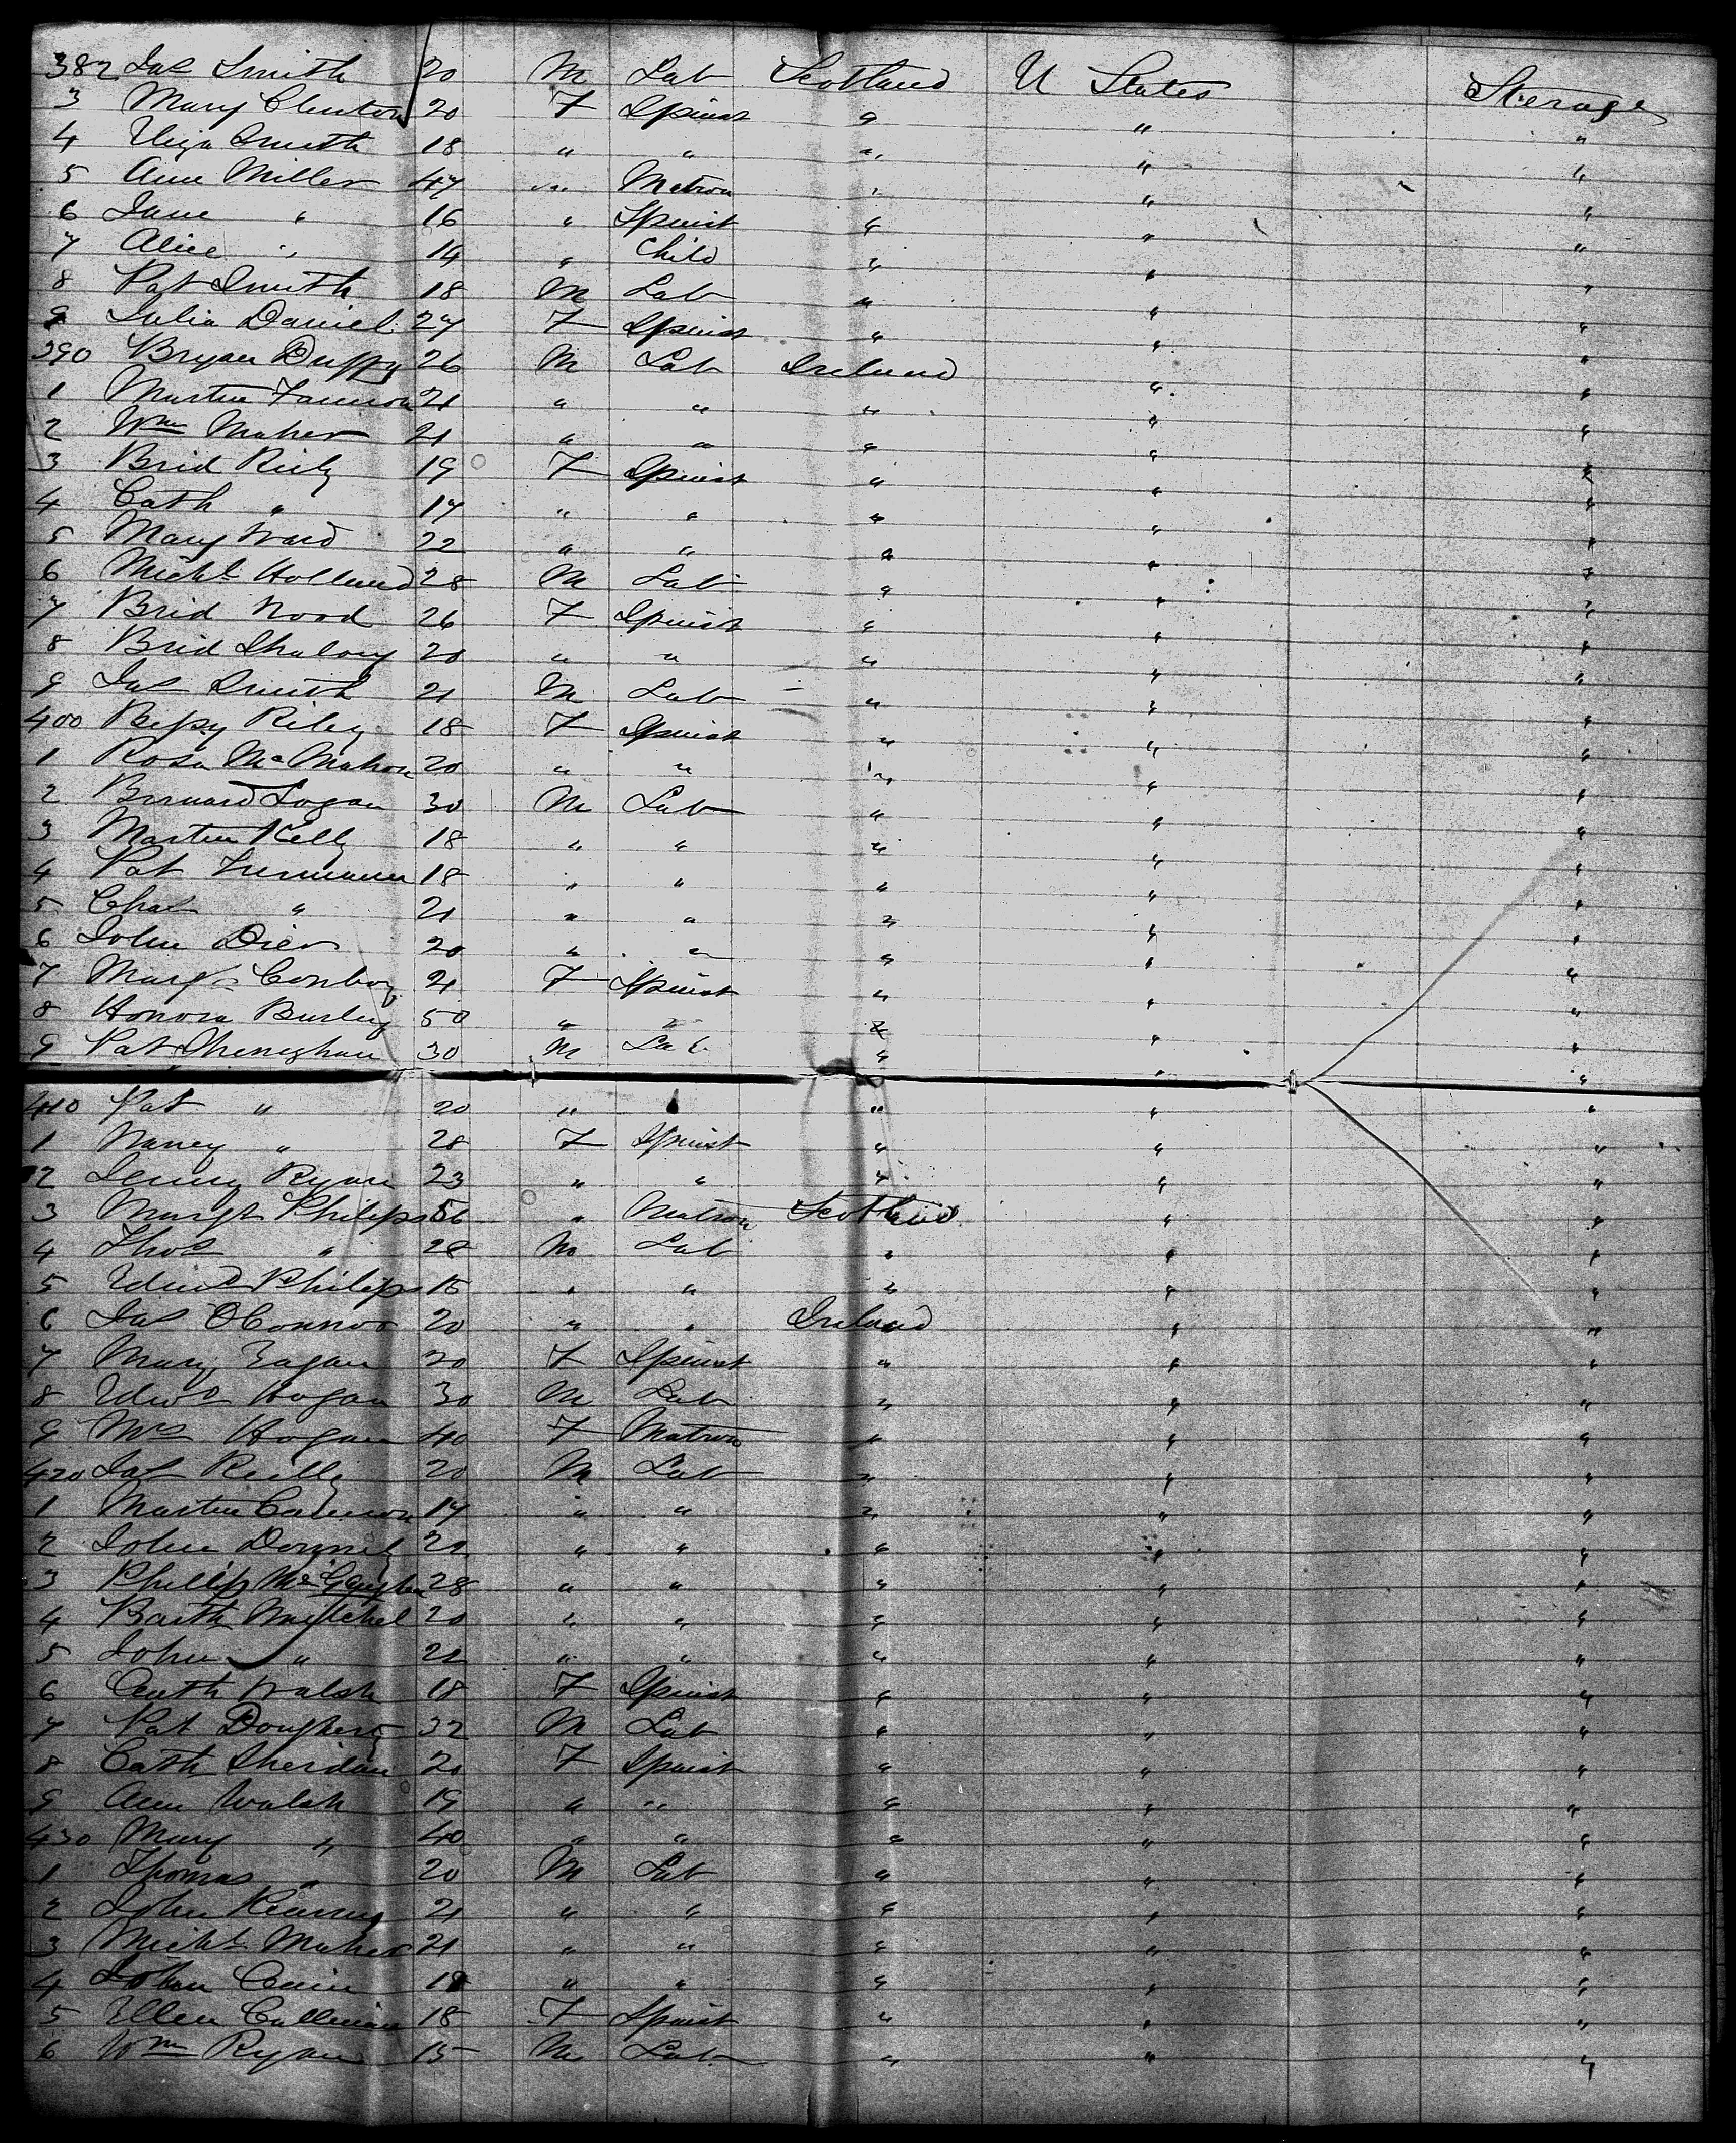 382 Jas Smith 20 M Lab Scotland U States Steerage
3 Mary Clinton 20 F Spinst " " "
4 Eliza Smith 18 " " " " "
5 Ann Miller 47 " Matron " " "
6 Jane " 16 " Spinst " " "
7 Alice " 14 " Child " " "
8 Pat Smith 18 M Lab " " "
9 Julia Daniel 27 F Spinst " " "
390 Bryan Duffy 26 M Lab Ireland " "
1 Martin Fannon 21 " " " " "
2 Wm Maher 21 " " " " "
3 Brid Riely 19 F Spinst " " "
4 Cath " 17 " " " " "
5 Mary Ward 22 " " " " "
6 Michl Holland 28 M Lab " " "
7 Brid Wood 26 F Spinst " " "
8 Brid 20 " " " " "
9 Jas Smith 21 M Lab " " "
400 Betsy Riley 18 F Spinst " " "
1 Rosa McMahon 20 " " " " "
2 Bernard Logan 30 M Lab " " "
3 Martin Kelly 18 " " " " "
4 Pat 18 " " " " "
5 Chas " 21 " " " " "
6 John Dier 20 " " " " "
7 Margt Conboy 21 F Spinst " " "
8 Honora Burley 50 " " " " "
9 Pat 30 M Lab " " "
410 Pat " 20 " " " "
1 Nancy " 28 F Spinst " " "
12 Jenny Ryan 23 " " " " "
3 Margt Philips 56 " Matron Scotland " "
4 Thos " 28 M Lab " " "
5 Edmd Philips 15 " " " " "
6 Jas OConnor 20 " " Ireland " "
7 Mary Eagan 20 F Spinst " " "
8 Edwd Hogan 30 M Lab " " "
9 Mrs Hogan 40 F Matron " " "
420 Jas Reilly 20 M Lab " " "
1 Martin Cannon 17 " " " " "
2 John 20 " " " " "
3 Phillip 28 " " " " "
4 Barth Mitchel 20 " " " " "
5 John " 21 " " " " "
6 Cath Walsh 18 F Spinst " " "
7 Pat Dougherty 32 M Lab " " "
8 Cath Sheridan 20 F Spinst " " "
9 Ann Walsh 19 " " " " "
430 Mary " 40 " " " " "
1 Thomas " 20 M Lab " " "
2 John Kearny 21 " " " " "
3 Michl Maher 21 " " " " "
4 John Cain 18 " " " " "
5 Ellen Cullinan 18 F Spinst " " "
6 Wm Ryan 15 M Lab " " "